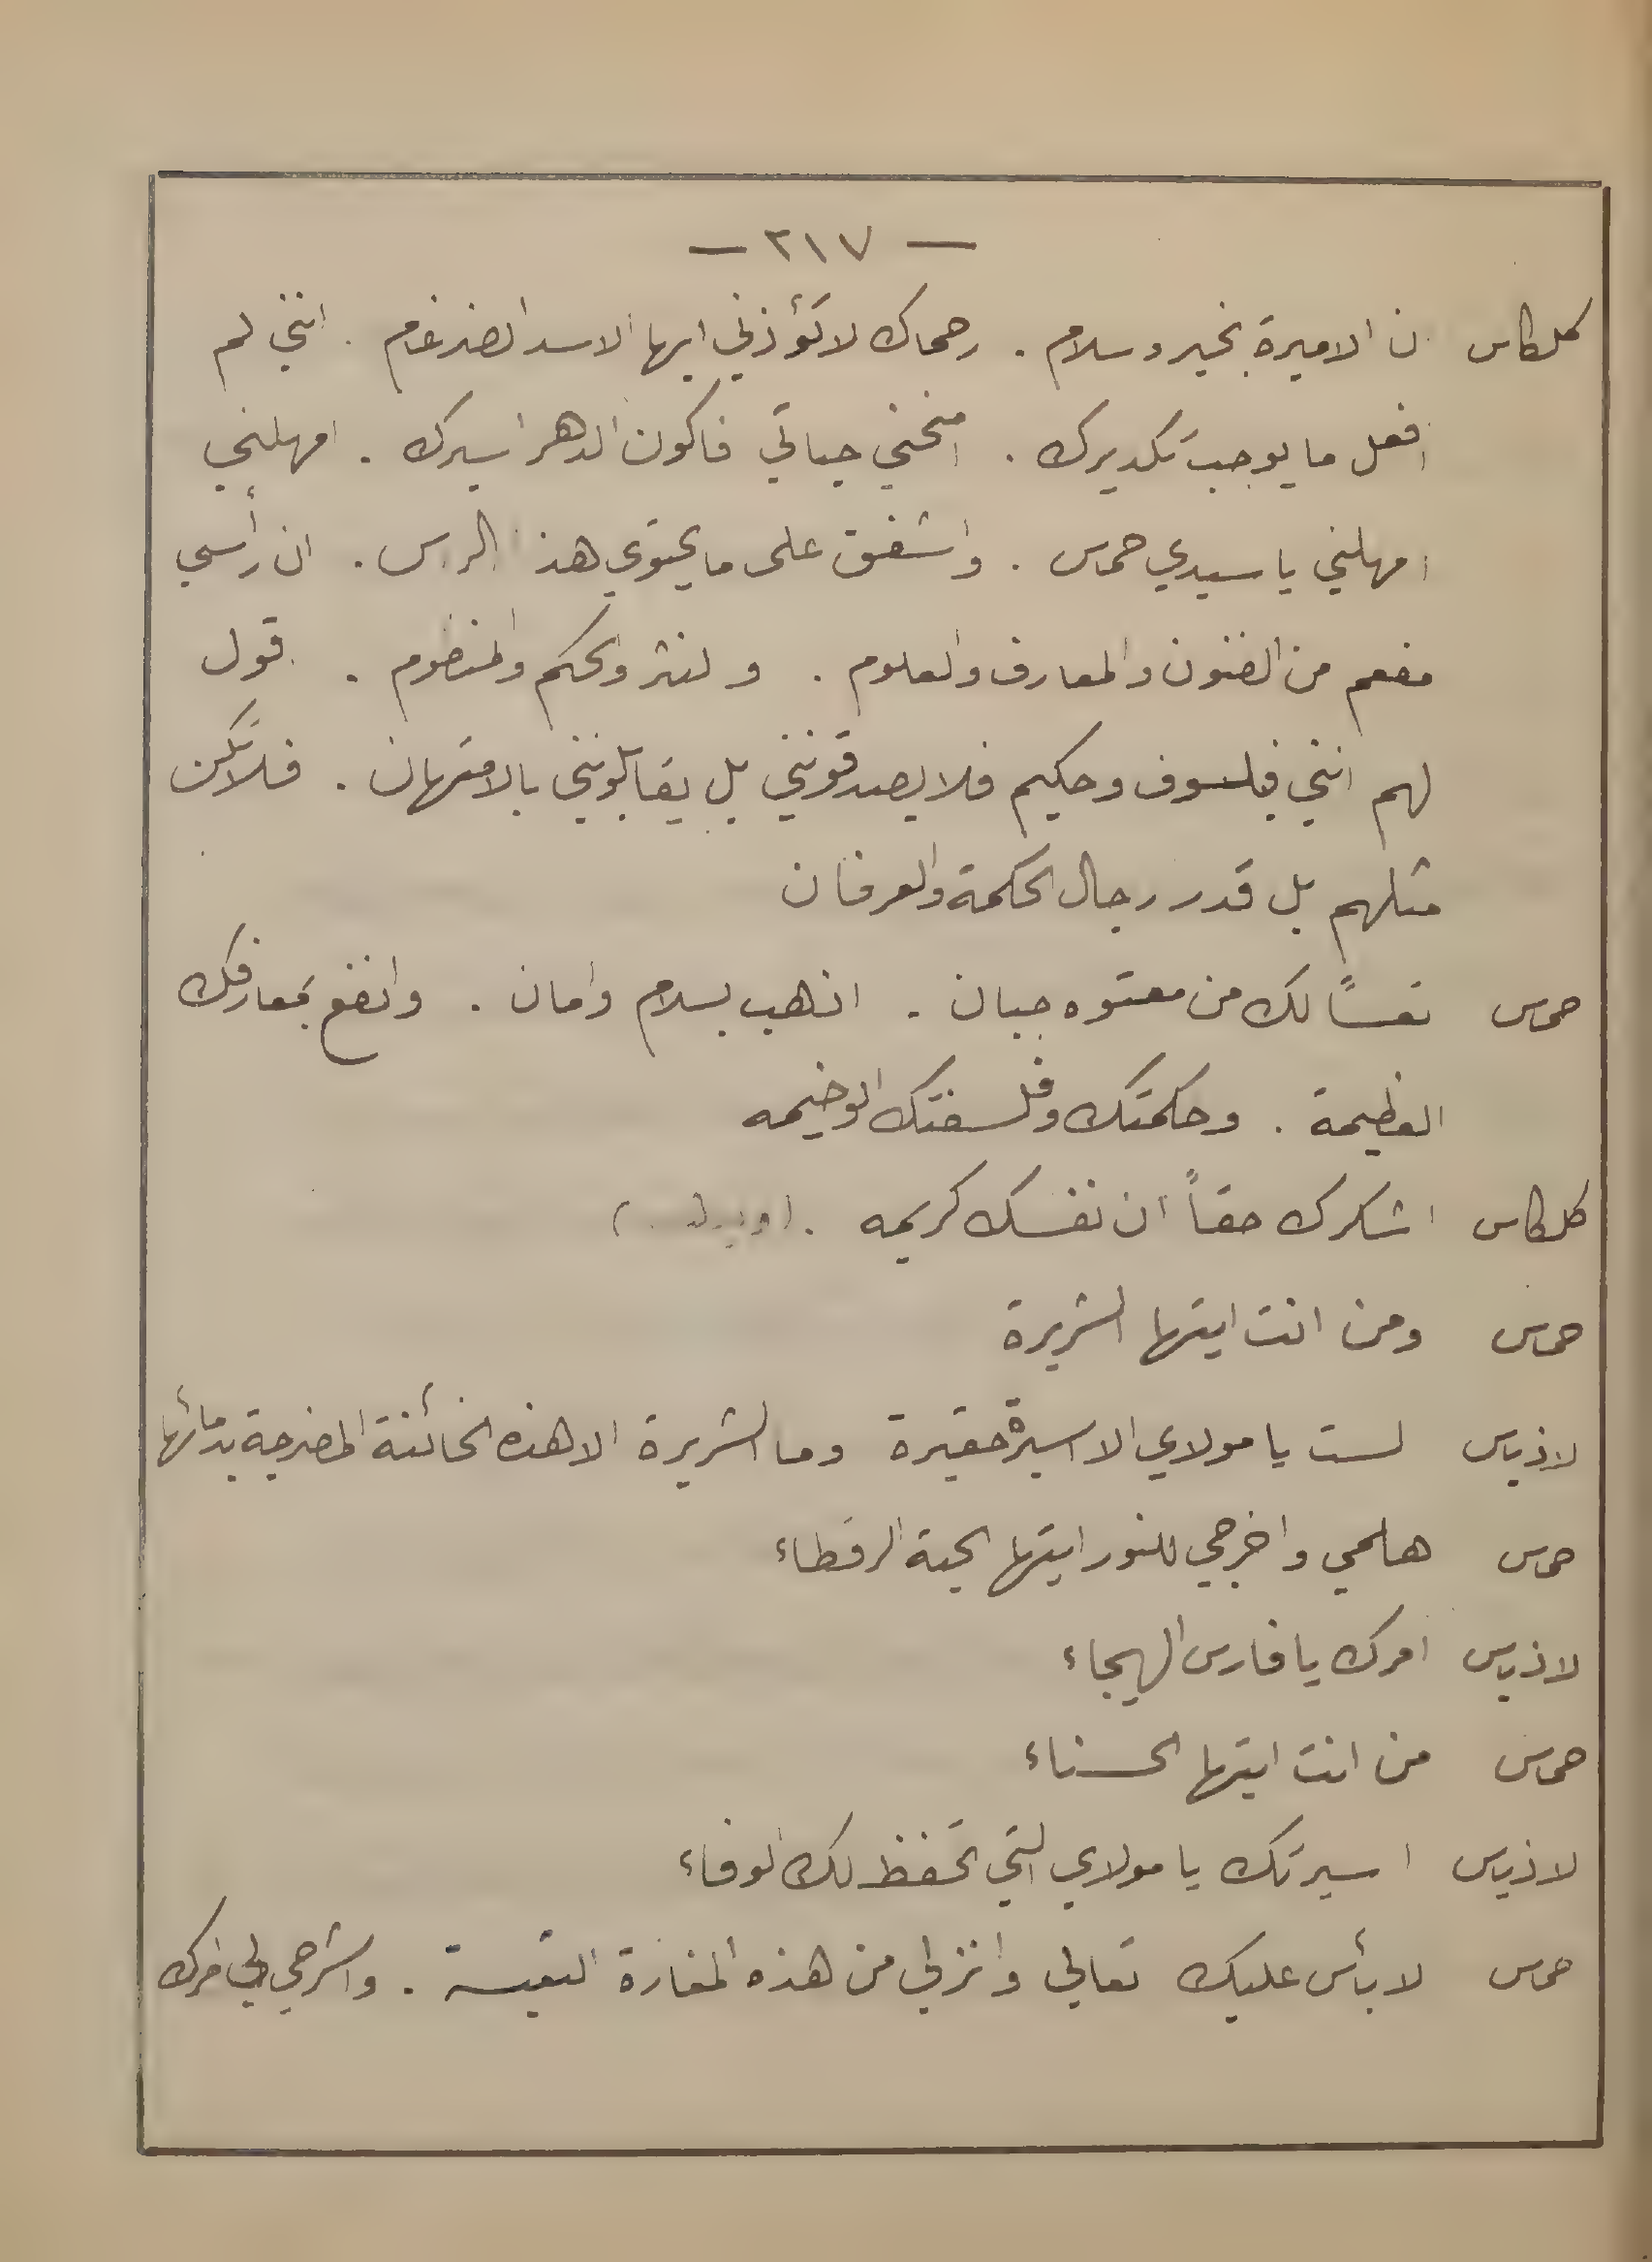 — ٢١٧ —
كلكاس ن الاميرة بخير وسلام . رحماك لا تؤذني ايها الاسد الضرغام . انني لم
افعل ما يوجب تكديرك . امنحني حياتي فاكون الدهر اسيرك . امهلني
امهلني يا سيدي حمس . واشفق على ما يحتوي هذا الراس . ان رأسي
مفعم من الفنون والمعارف والعلوم . والنثر والحكم والمنظوم . قول
لهم انني فيلسوف وحكيم فلا يصدقونني بل يقابلونني بالامتهان . فلا تكن
مثلهم بل قدر رجال الحكمة والعرفان
حمس تعسًا لك من معتوه جبان . اذهب بسلام وامان . وانفع بمعارفك
العظيمة . وحكمتك وفلسفتك الوخيمه
كلكاس اشكرك حقاً ان نفسك كريمه .
حمس ومن انت ايتها الشريرة
لاذيس لست يا مولاي الا اسيرة حقيرة وما الشريرة الا هذه الخائنة المضرجة بدمائها
حمس هلمي واخرجي للنور ايتها الحية الرقطاء
لاذيس امرك يا فارس الهيجاء
حمس من انت ايتها الحسناء
لاذيس اسيرتك يا مولاي التي تحفظ لك الوفاء
حمس لا بأس عليك تعالي وانزلي من هذه المغارة التعيسة . واشرحي لي امرك